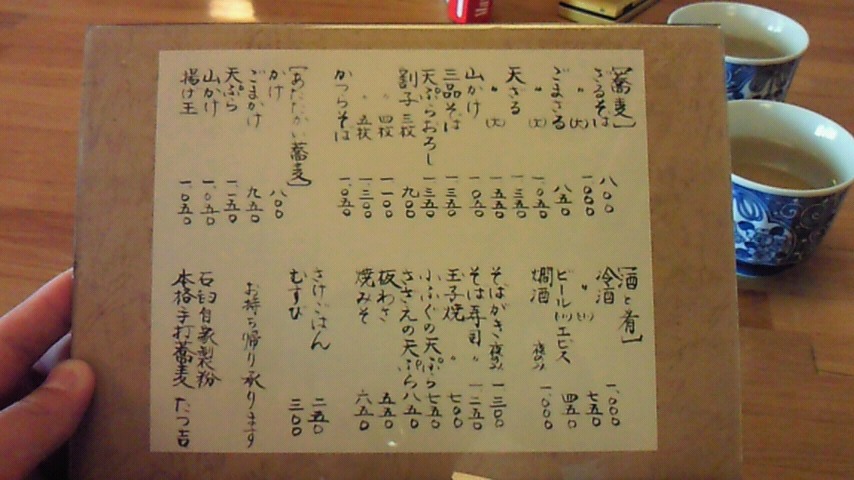 [蕎麦]
ざるそば 八〇〇
〃(大) 一、〇〇〇
ごまざる 八五〇
〃(大) 一、〇五〇
天ざる 一、三五〇
〃(大) 一、五五〇
山かけ 一、〇五〇
三品そば 一、三五〇
天ぷらおろし 一、三五〇
割子 三枚 九〇〇
〃 四枚 一、一〇〇
〃 五枚 一、三〇〇
かつらそば 一、〇五〇
[あたたかい蕎麦]
かけ 八〇〇
ごまかけ 九五〇
天ぷら 一、二五〇
山かけ 一、〇五〇
揚げ玉 一、〇五〇
[酒と肴]
冷酒 一、〇〇〇
〃(小) 七五〇
ビール(小)エビス 四五〇
燗酒 夜のみ 一、〇〇〇
そばがき 夜のみ 一、三〇〇
そば寿司 〃 一、二五〇
玉子焼 〃 七〇〇
小ふぐの天ぷら 七五〇
さざえの天ぷら 八五〇
板わさ 五五〇
焼みそ 六五〇
さけごはん 二五〇
むすび 三〇〇
お持ち帰り承ります
石臼自家製粉
本格手打蕎麦 たつ吉